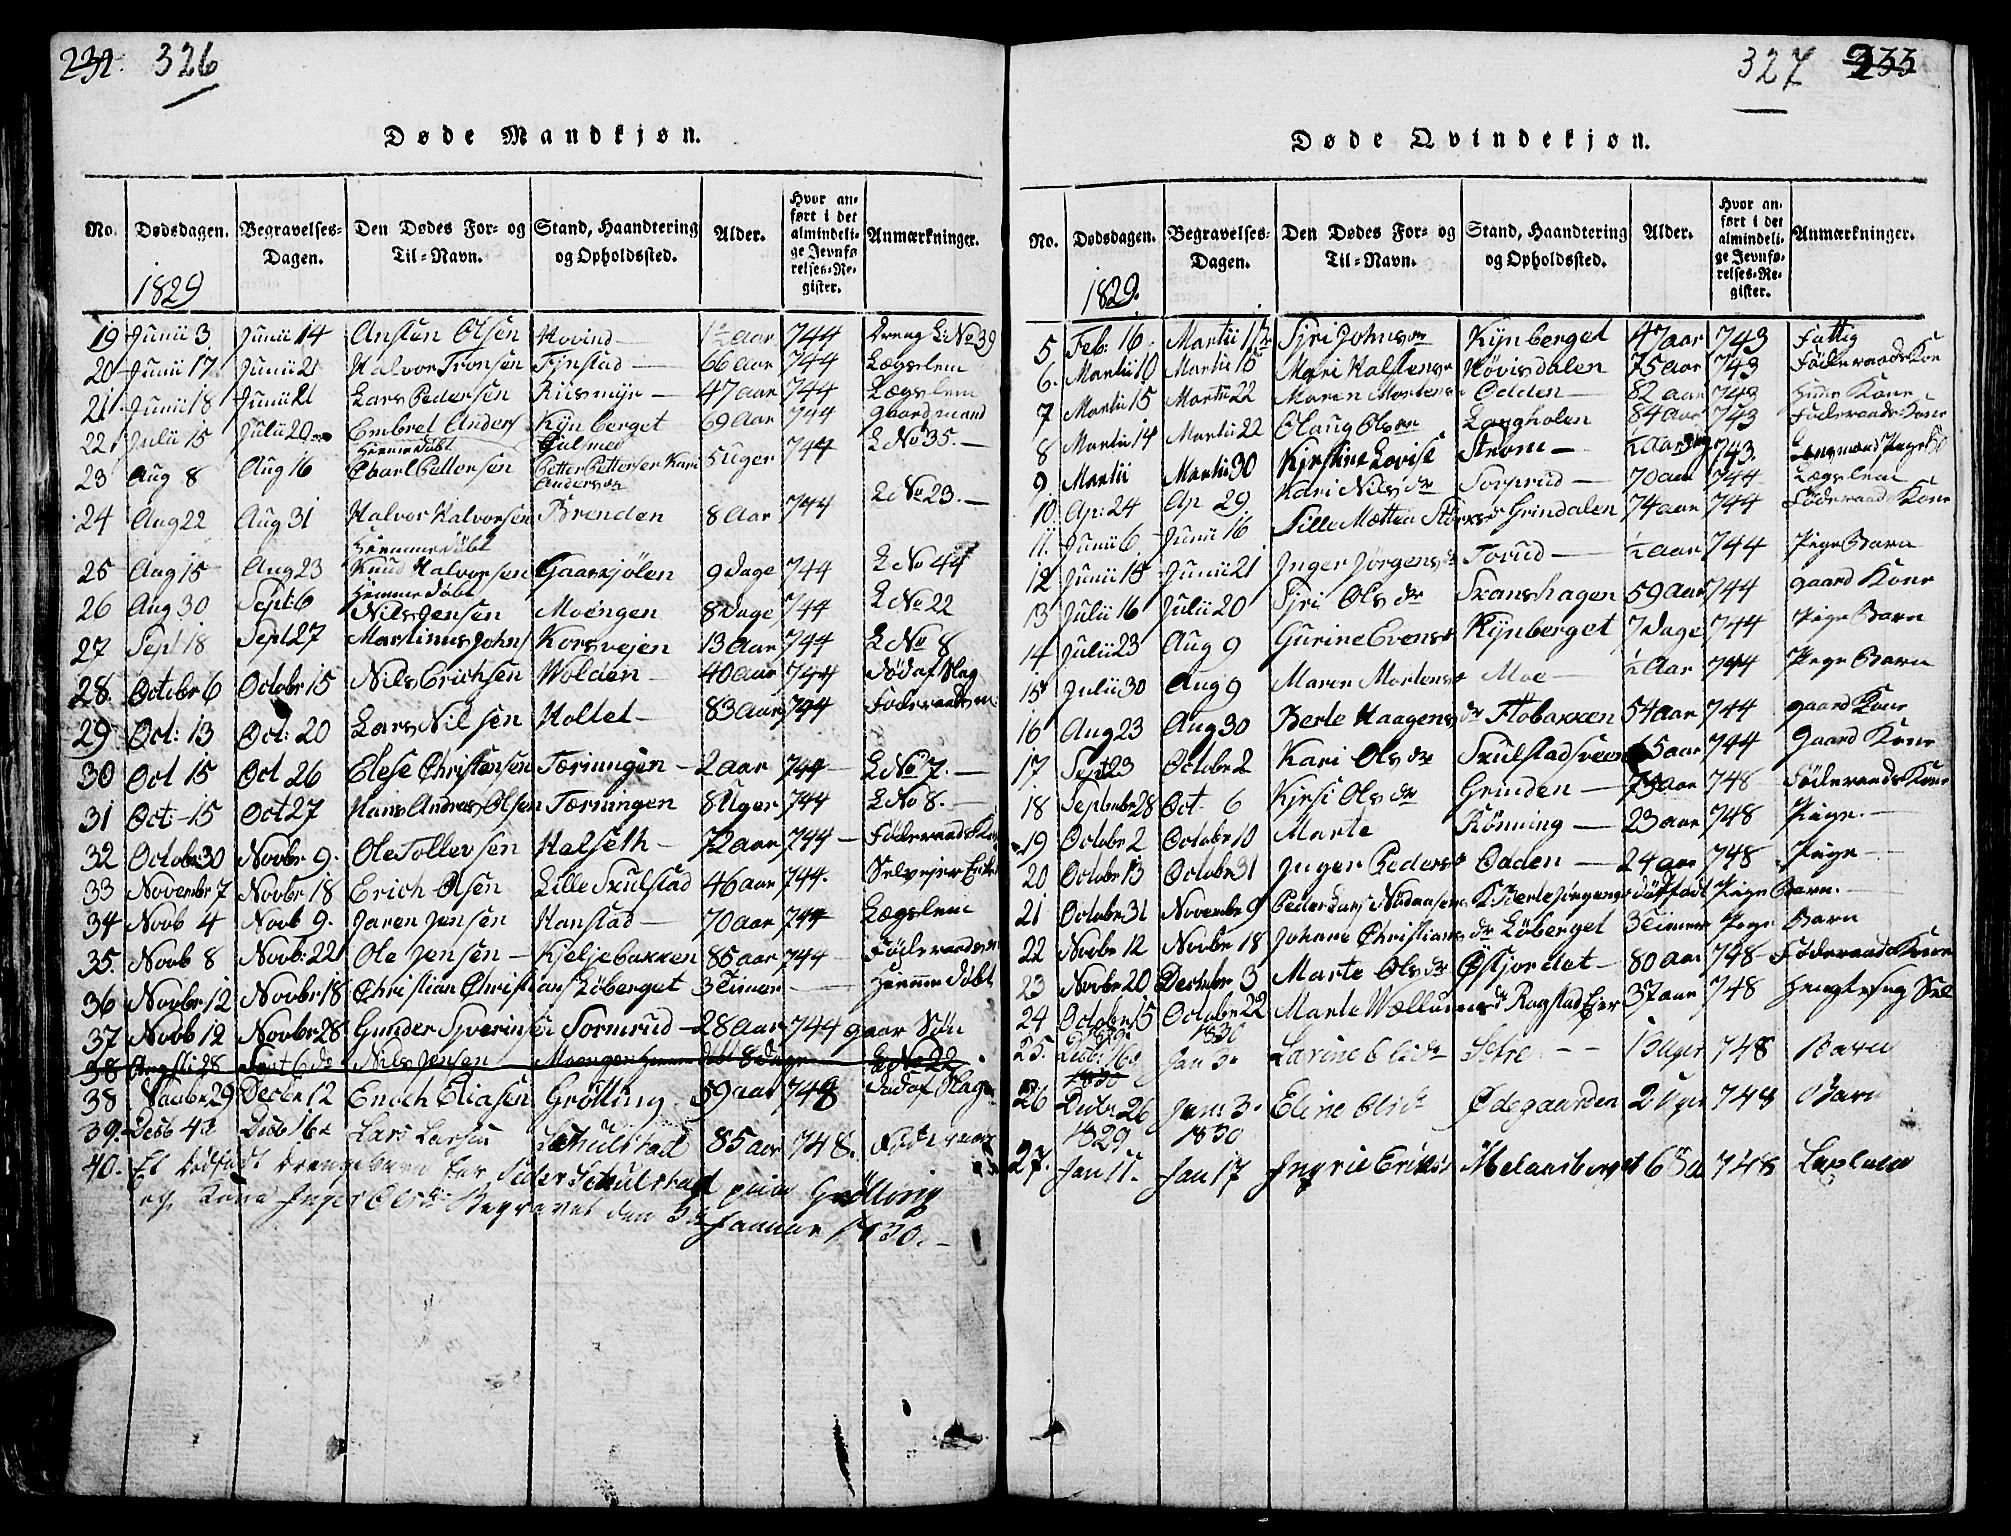 232 326
Døde Mandkjøn.
No. Dødsdagen. Begravelses-Dagen. Den Dødes For- og Til-Navn. Stand, Haandtering og Opholdssted. Alder. Hvor anført i det almindelige Jevnførelses-Register. Anmærkninger.
1829
19 Junii 3 Junii 14 Ansten Olsen Hovind 1/2 Aar 744 Dreng L No 39
20 Junii 17 Junii 21 Halvor Tronsen Tynstad 66 aar 744 Lægslem
21 Junii 18 Junii 21 Lars Pedersen Kiismyr 47 Aar 744 Lægslem
22 Julii 15 Julii 20 Embret Anders Kynberget 69 Aar 744 gaardmand
Hiemmedøbt
23 Aug 8 Aug 16 Charl Pettersen Petter Pettersen Kari 5 Uger 744 L No 35.
Andersdr
24 Aug 22 Aug 31 Halvor Halvorsen Brenden 8 Aar 744 L No 23.
Hiemmedøbt
25 Aug 15 Aug 23 Knud Halvorsen Gaaskjølen 9 Dage 744 L No 44
Hiemmedøbt
26 Aug 30 Sept: 6 Nils Jensen Moengen 8 Dage 744 L No 22
27 Sept 18 Sept 27 Martinus Johns Korsvejen 13 Aar 744 L No 8
28 Octobr 6 Octobr 15 Nils Erichsen Wolden 40 Aar 744 død af Slag
29 Oct: 13 Oct: 20 Lars Nilsen Holtet 83 Aar 744
30 Oct 15 Oct 26 Elese Christensen Tærningen 2 aar 744 L No 7.
31 Oct 15 Oct 27 Hans Andreas Olsen Tærningen 8 Uger 744 L No 8.
32 Octobr 30 Novbr 9. Ole Tollevsen Halseth 72 Aar 744
33 Novembr 7 Novbr 18 Erich Olsen Lille Skulstad 46 aar 744.
34 Novb 4 Novb 9. Jaren Jensen Hanstad 70 aar 744 Lægslem
35. Novb 8 Novb: 22 Ole Jensen Kjeljebakken 85 aar 744
36 Novbr 12 Novbr 18 Christian Christians Løberget 3 Timer Hiemmedøbt
37 Novb 12 Novbr 28 Gunder Syverinsen Sormrud 28 Aar 744 gaar Søn
38 Sept 6 Nils Jensen Moengen 8 Dage L No 22
38 Novbr 29 Decbr 12 Enoch Eliasen Grøtting 59 aar 748 død af Slag
39. Decb 4 Decb 16 Lars Larsen Schulstad 85 aar 748.
40. Et dødfødt Drengebarn Peder Schulstad Grøtting
og Kone Inger Olsdr Begravet den 3 Januar 1830.
327 233
Døde Qvindekjøn.
No. Dødsdagen. Begravelses-Dagen. Den Dødes For- og Til-Navn. Stand, Haandtering og Opholdssted. Alder. Hvor anført i det almindelige Jevnførelses-Register. Anmærkninger.
1829.
5 Feb: 16 Martii Sjri Johnsdr Kynberget 47 aar 743 Fattig
6. Martii 10 Martii 15 Mari Halstensdr Høvisdalen 75 aar 743 Føderaads Kone
7 Martii 15 Martii 22 Maren Mortens Odden 82 aar 743 Kone
8 Martii 14 Martii 22 Olaug Olsdr Langholen 84 aar 743 Føderaads Kone
9. Martii Martii 30 Kjerstine Lovise Strøm 743.
10. Ap: 24 Ap 29 Kari Nilsdr Sorprud 70 aar 744 Lægslem
11. Junii 6 Junii 16 Sille Mætten Grindalen 74 aar 744 Føderaads Kone
12 Junii 15 Junii 21 Inger Jørgensdr Torud 1/2 aar 744 Pige Barn
13 Julii 16 Julii 20 Sjri Olsdr Skanshagen 59 aar 744 gaard Kone
14 Julii 23 Aug 9 Gurine Evensdr Kynberget 7 Dage 744 Pige Barn
15 Julii 30 Aug 9 Maren Mortens Moe 1/2 Aar 744 Pige Barn
16 Aug 23 Aug 30 Berte Haagensdr Flobakken 54 aar 744 gaard Kone
17 Sept 23 Octobr 2 Kari Olsdr 5 aar 744 Gaard Kone
18 Septembr 28 Oct 6 Kjersi Olsdr Grinden 73 aar 748 Føderaads Kone
19 Octobr 2 Octobr 10 Marte Rønning 23 aar 748 Pige.
20 Octobr 13 Octobr 31 Inger Pedersdr Odden 24 aar 748 Pige
21 Octobr 31 Novembr 9 Peder Lars dødfødt Pige Barn.
22 Novbr 12 Novbr 18 Johane Christians dr Løberget 3 Timer Pige Barn
23 Novbr 20 Decembr 3 Marte Olsdr Østjordet 80 aar 748 Føderaads Kone
24 Octobr 15 Octobr 22 Marte 37 aar 748
1829 1830
25. Decbr 16 Jan 3 Larine Olsdr Sætre 13 Uger 748 Barn
1830
26 Decbr 26 Jan 3 Eline Olsdr Ødegaarden 2 Uger 748 Barn
1829 1830
27. Jan 11. Jan 17 Ingrie Eriksdr 748